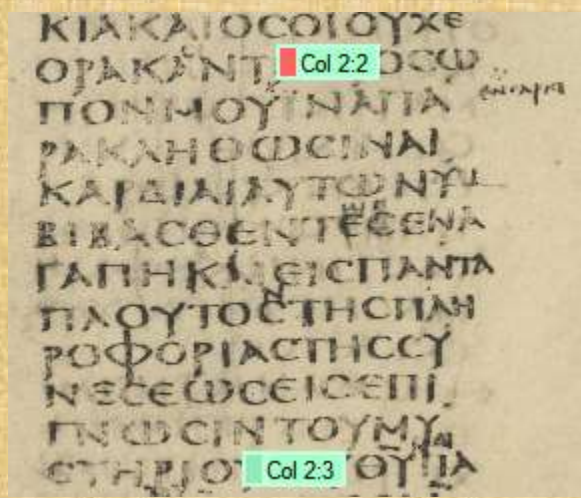 ΚΙΑΚΑΙΟϹΟΙΟΥΧΕ
ΟΡΑΚΑΝΤ Col 2:2 ΟϹΩ
ΠΟΝΜΟΥΪΝΑΠΑ
ΡΑΚΛΗΘΩϹΙΝΑΙ
ΚΑΡΔΙΑΙΑΥΤΩΝϹΥ
ΒΙΒΑϹΘΕΝΤΕϹΕΝΑ
ΓΑΠΗΚΑΙΕΙϹΠΑΝΤΑ
ΠΛΟΥΤΟϹΤΗϹΠΛΗ
ΡΟΦΟΡΙΑϹΤΗϹϹΥ
ΝΕϹΕΩϹΕΙϹΕΠΙ
ΓΝΩϹΙΝΤΟΥΜΥ
ϹΤΗΡΙΟΥ Col 2:3 ΘΥΠΑ